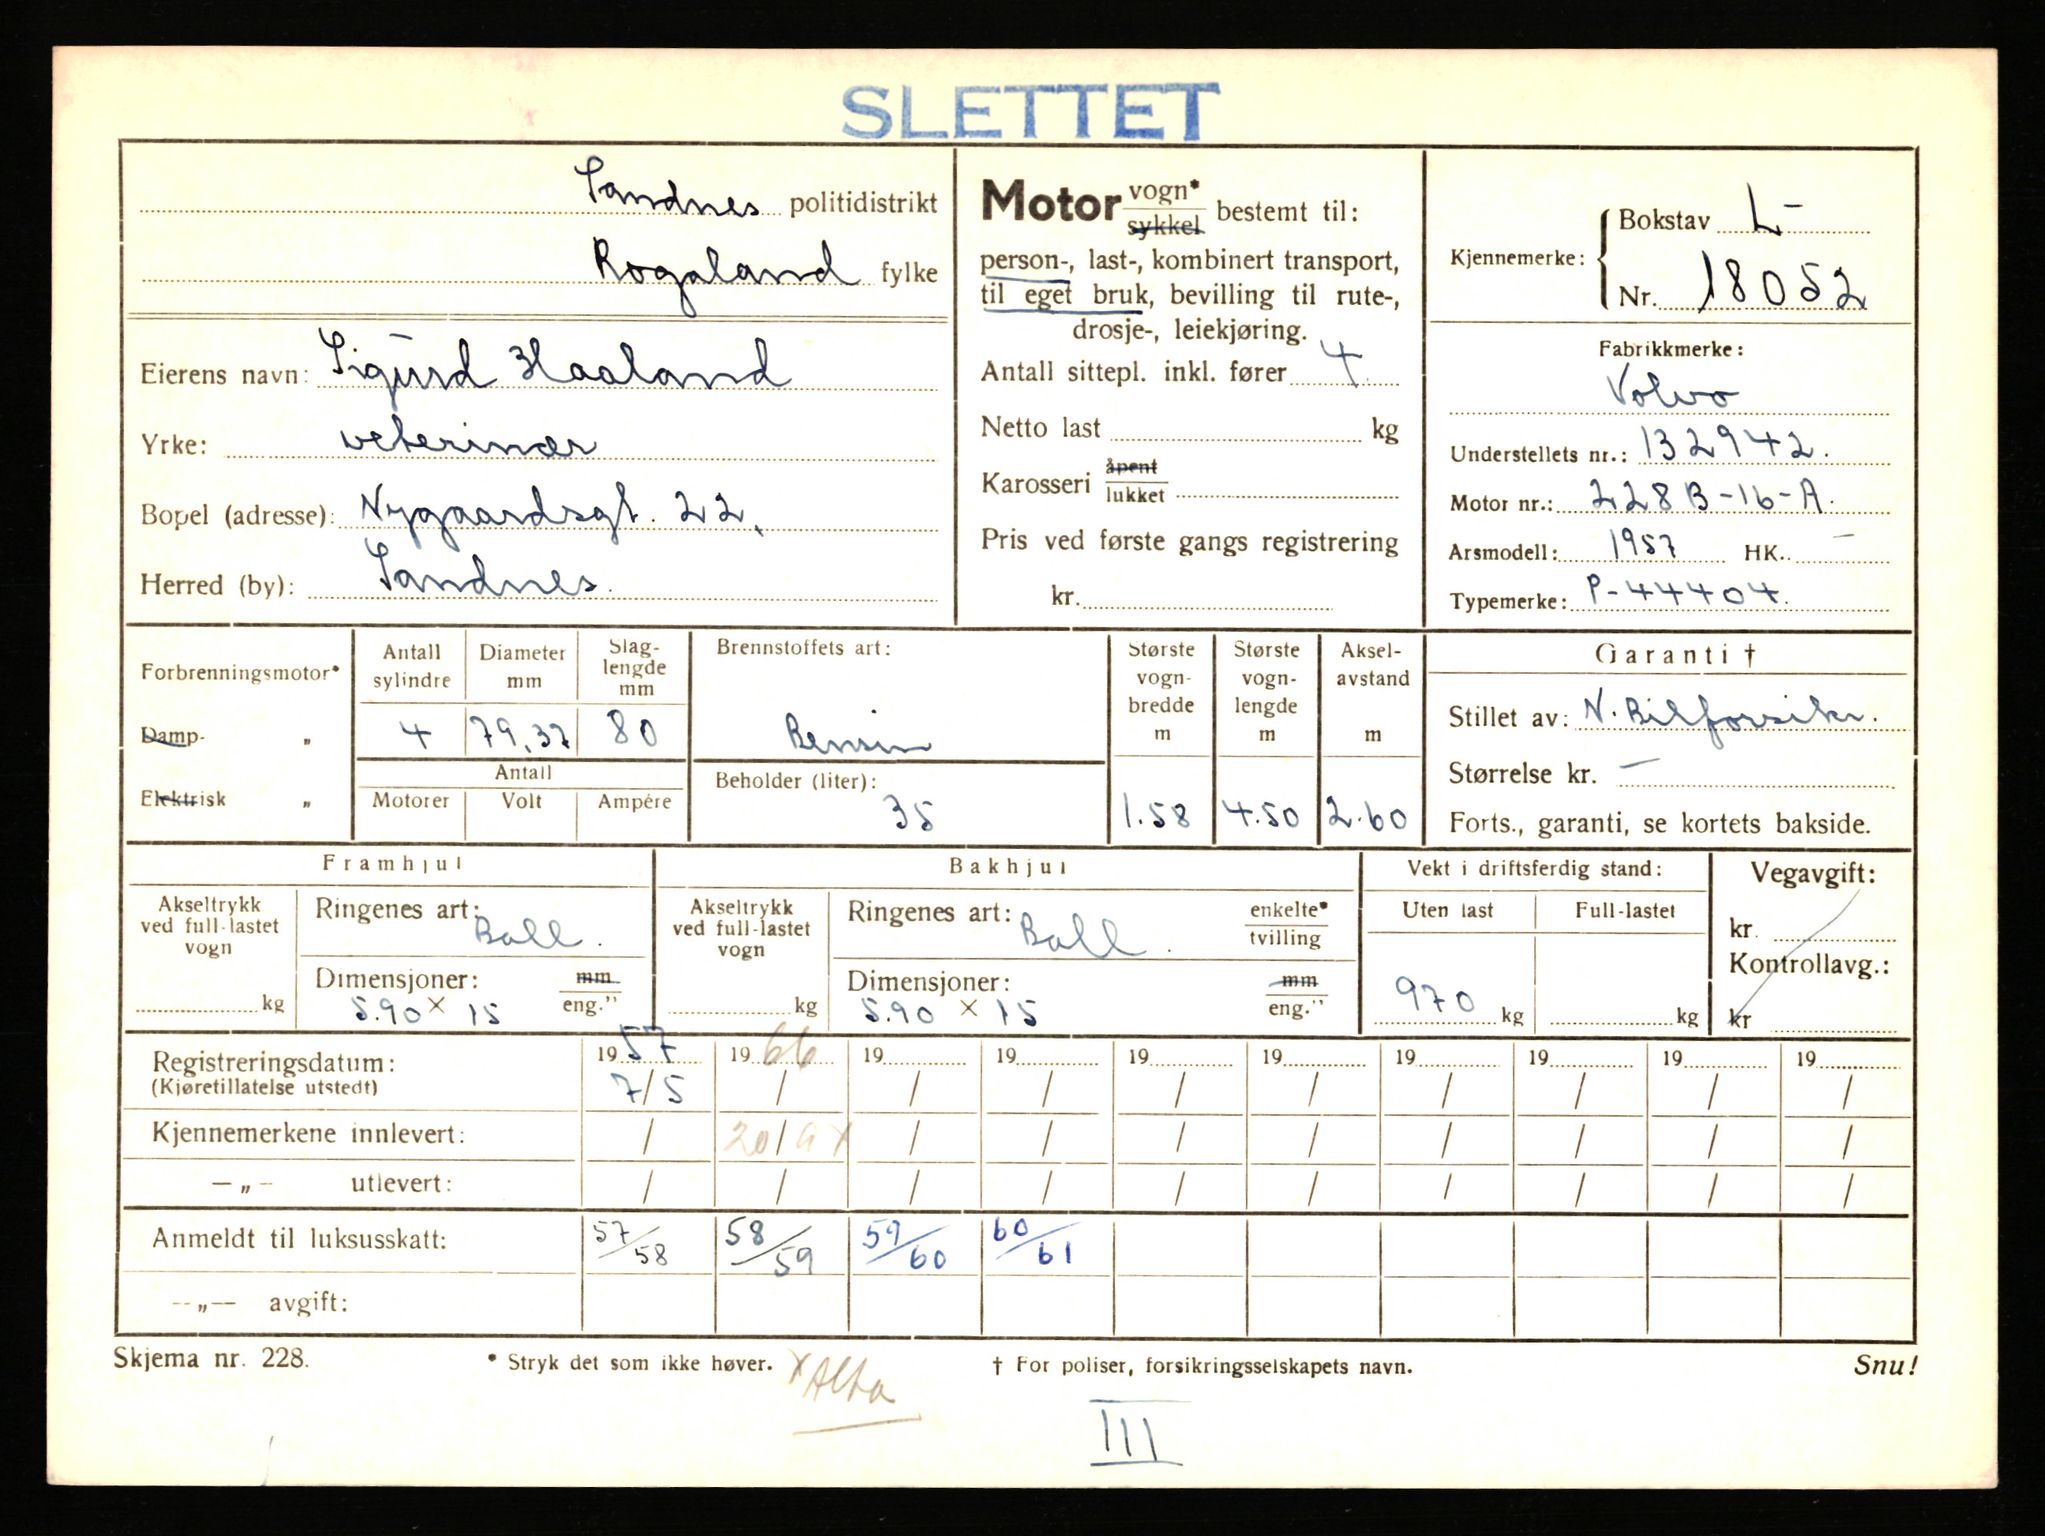 SLETTET
Sandnes politidistrikt
Rogaland fylke
Eierens navn: Sigurd Haaland
Yrke: veterinær
Bopel (adresse): Nygaardsgt. 22,
Herred (by): Sandnes.
Motor vogn* sykkel bestemt til:
person-, last-, kombinert transport,
til eget bruk, bevilling til rute-,
drosje-, leiekjøring.
Antall sittepl. inkl. fører 4
Netto last kg
Karosseri åpent lukket
Pris ved første gangs registrering
kr.
Kjennemerke: Bokstav L-
Nr. 18052
Fabrikkmerke:
Volvo
Understellets nr.: 132942.
Motor nr.: 228 B-16-A.
Arsmodell: 1957 HK. —
Typemerke: P-44404.
Forbrenningsmotor*
Damp- „
Elektrisk „
Antall sylindre Diameter mm Slag-lengde mm
4 79,37 80
Antall
Motorer Volt Ampére
Brennstoffets art:
Bensin
Beholder (liter):
35
Største vogn-bredde m Største vogn-lengde m Aksel-avstand m
1.58 4.50 2.60
Garanti †
Stillet av: N. Bilforsikr.
Størrelse kr. —
Forts., garanti, se kortets bakside.
Framhjul
Akseltrykk ved full-lastet vogn
kg
Ringenes art: Ball.
Dimensjoner: mm eng."
5.90 x 15
Bakhjul
Akseltrykk ved full-lastet vogn
kg
Ringenes art: Ball. enkelte* tvilling
Dimensjoner: mm eng."
5.90 x 15
Vekt i driftsferdig stand:
Uten last Full-lastet
970 kg kg
Vegavgift:
kr.
Kontrollavg.:
kr
Registreringsdatum: 1957 1966 19 19 19 19 19 19 19 19
(Kjøretillatelse utstedt) 7/5 / / / / / / / / /
Kjennemerkene innlevert: / 20/9 x / / / / / / / /
— „ — utlevert: / / / / / / / / / /
Anmeldt til luksusskatt: 57/58 58/59 59/60 60/61
— „ — avgift:
Skjema nr. 228. * Stryk det som ikke høver. † For poliser, forsikringsselskapets navn. Snu!
x Alta
III